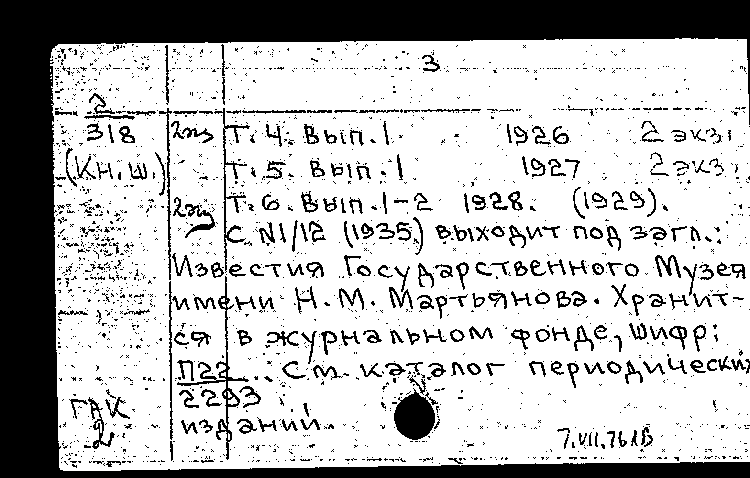 3
2
318 2 экз Т. 4. Вып. 1 1926 2 экз.
(Кн. ш.) Т. 5. Вып. 1 1927 2 экз.
2 экз Т. 6. Вып. 1-2 1928. (1929).
С N1/12 (1935) выходит под загл.:
Известия Государственного Музея
имени Н. М. Мартьянова. Хранит-
ся в журнальном фонде, шифр:
П22 См. каталог периодических
2293
ГАК изданий.
2
7.VII.76